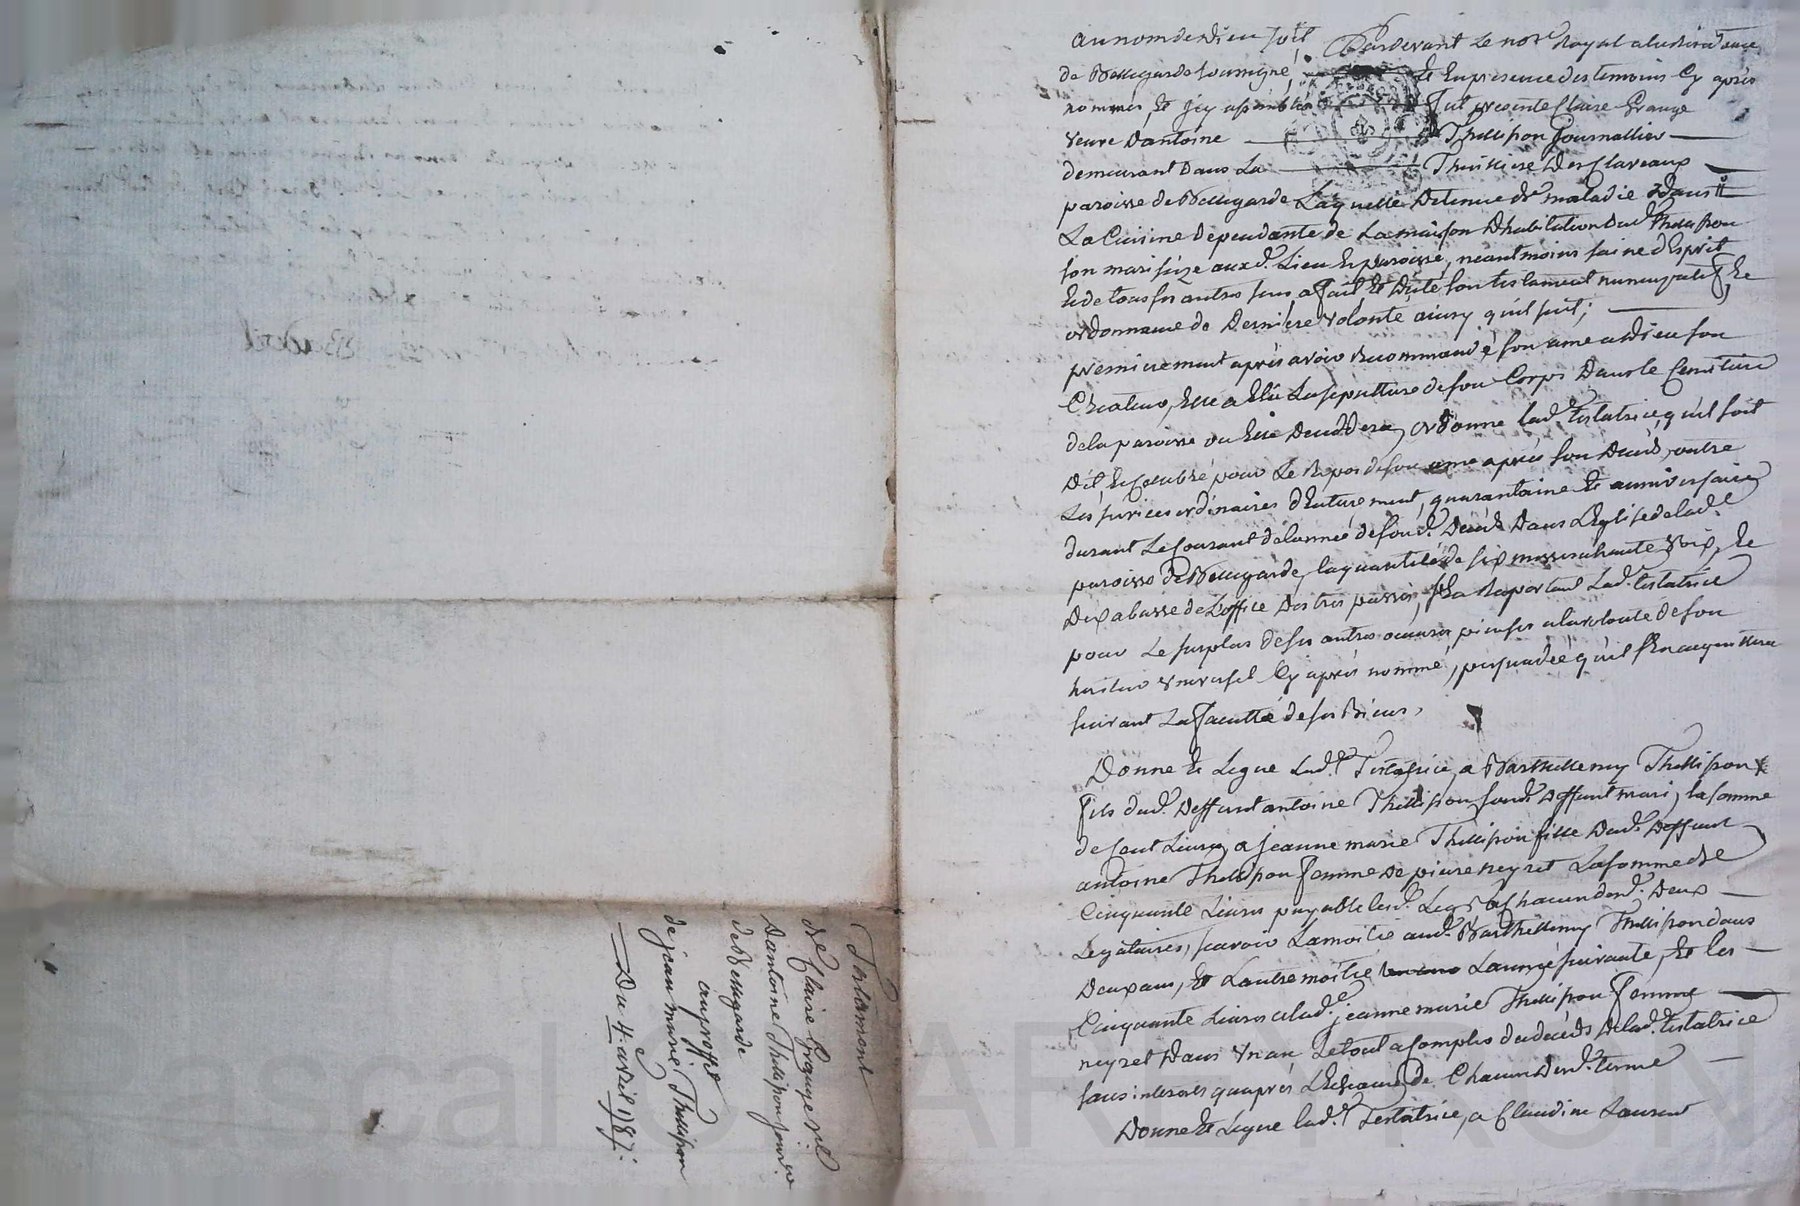 au nom de Dieu soit Pardevant Le no.re Royal a la residance
de Bellegarde soussigné, Et En presence des temoins Cy aprés
nommés Et Jcy assemblés fut presente Claire Grange
Veuve D'antoine Thellipon Journallier
demeurant Dans La Thuilliere Des Claveaux
paroisse de Bellegarde Laquelle Detenue de maladie Dans
La Cuisine dependante de La maison D'habitation dud. Thellipon
son mari size aud. Lieu Et paroisse, neantmoins saine d'Esprit
Et de tous ses autres sens a fait Et Dicté son testament nuncupatif, Et
ordonnance de Derniere volonté ainsy qu'il suit;
premierement aprés avoir Recommandé son ame a Dieu son
Createur, Elle a Elû La sepulture de son Corps Dans le Cemetiere
de la paroisse ou Elle Deceddera, ordonne lad.e testatrice, qu'il soit
Dit, Et Celebré pour Le Repos de son ame aprés son Decés, outre
Les services ordinaires d'Enterrement, quarantaine Et anniversaire
durant Le Courant de lannée de sond. Decés Dans L'Eglise de lad.e
paroisse de Bellegarde, la quantité de six messes a haute voix, Et
Dix a basse de L'office Des tres passés, S'En Raportant Lad. testatrice
pour Le surplus de ses autres œuvres pieuses a la volonté de son
heritier Universel Cy aprés nommé, persuadée qu'il s'En acquittera
suivant La faculté de ses Biens,
Donne Et Legue Lad.e Testatrice, a Barthellemy Thellipon
fils dud. Deffunt antoine Thellipon, sond. Deffunt mari, la somme
de Cent Livres, a jeanne marie Thellipon fille Dud. Deffunt
antoine Thellipon femme de pierre neyret La somme de
Cinquante Livres payable lesd. Legs a Chacun desd. Deux
Legataires, scavoir La moitié aud. Barthellemy Thellipon dans
Deux ans, Et L'autre moitié L'année suivante, Et les
Cinquante Livres a lad.e jeanne marie Thellipon femme
neyret Dans Un an Le tout a Compter du decés De lad. testatrice
sans interets qu'aprés L'Echeance de Chacun Desd. terme
Donne Et Legue lad.e Testatrice, a Claudine Laurent
Testament
de Claire Grange v.e
D'antoine Thellipon jour.er
de Bellegarde
au proffit
de jean marie Thellipon
Du 4. avril 1787.